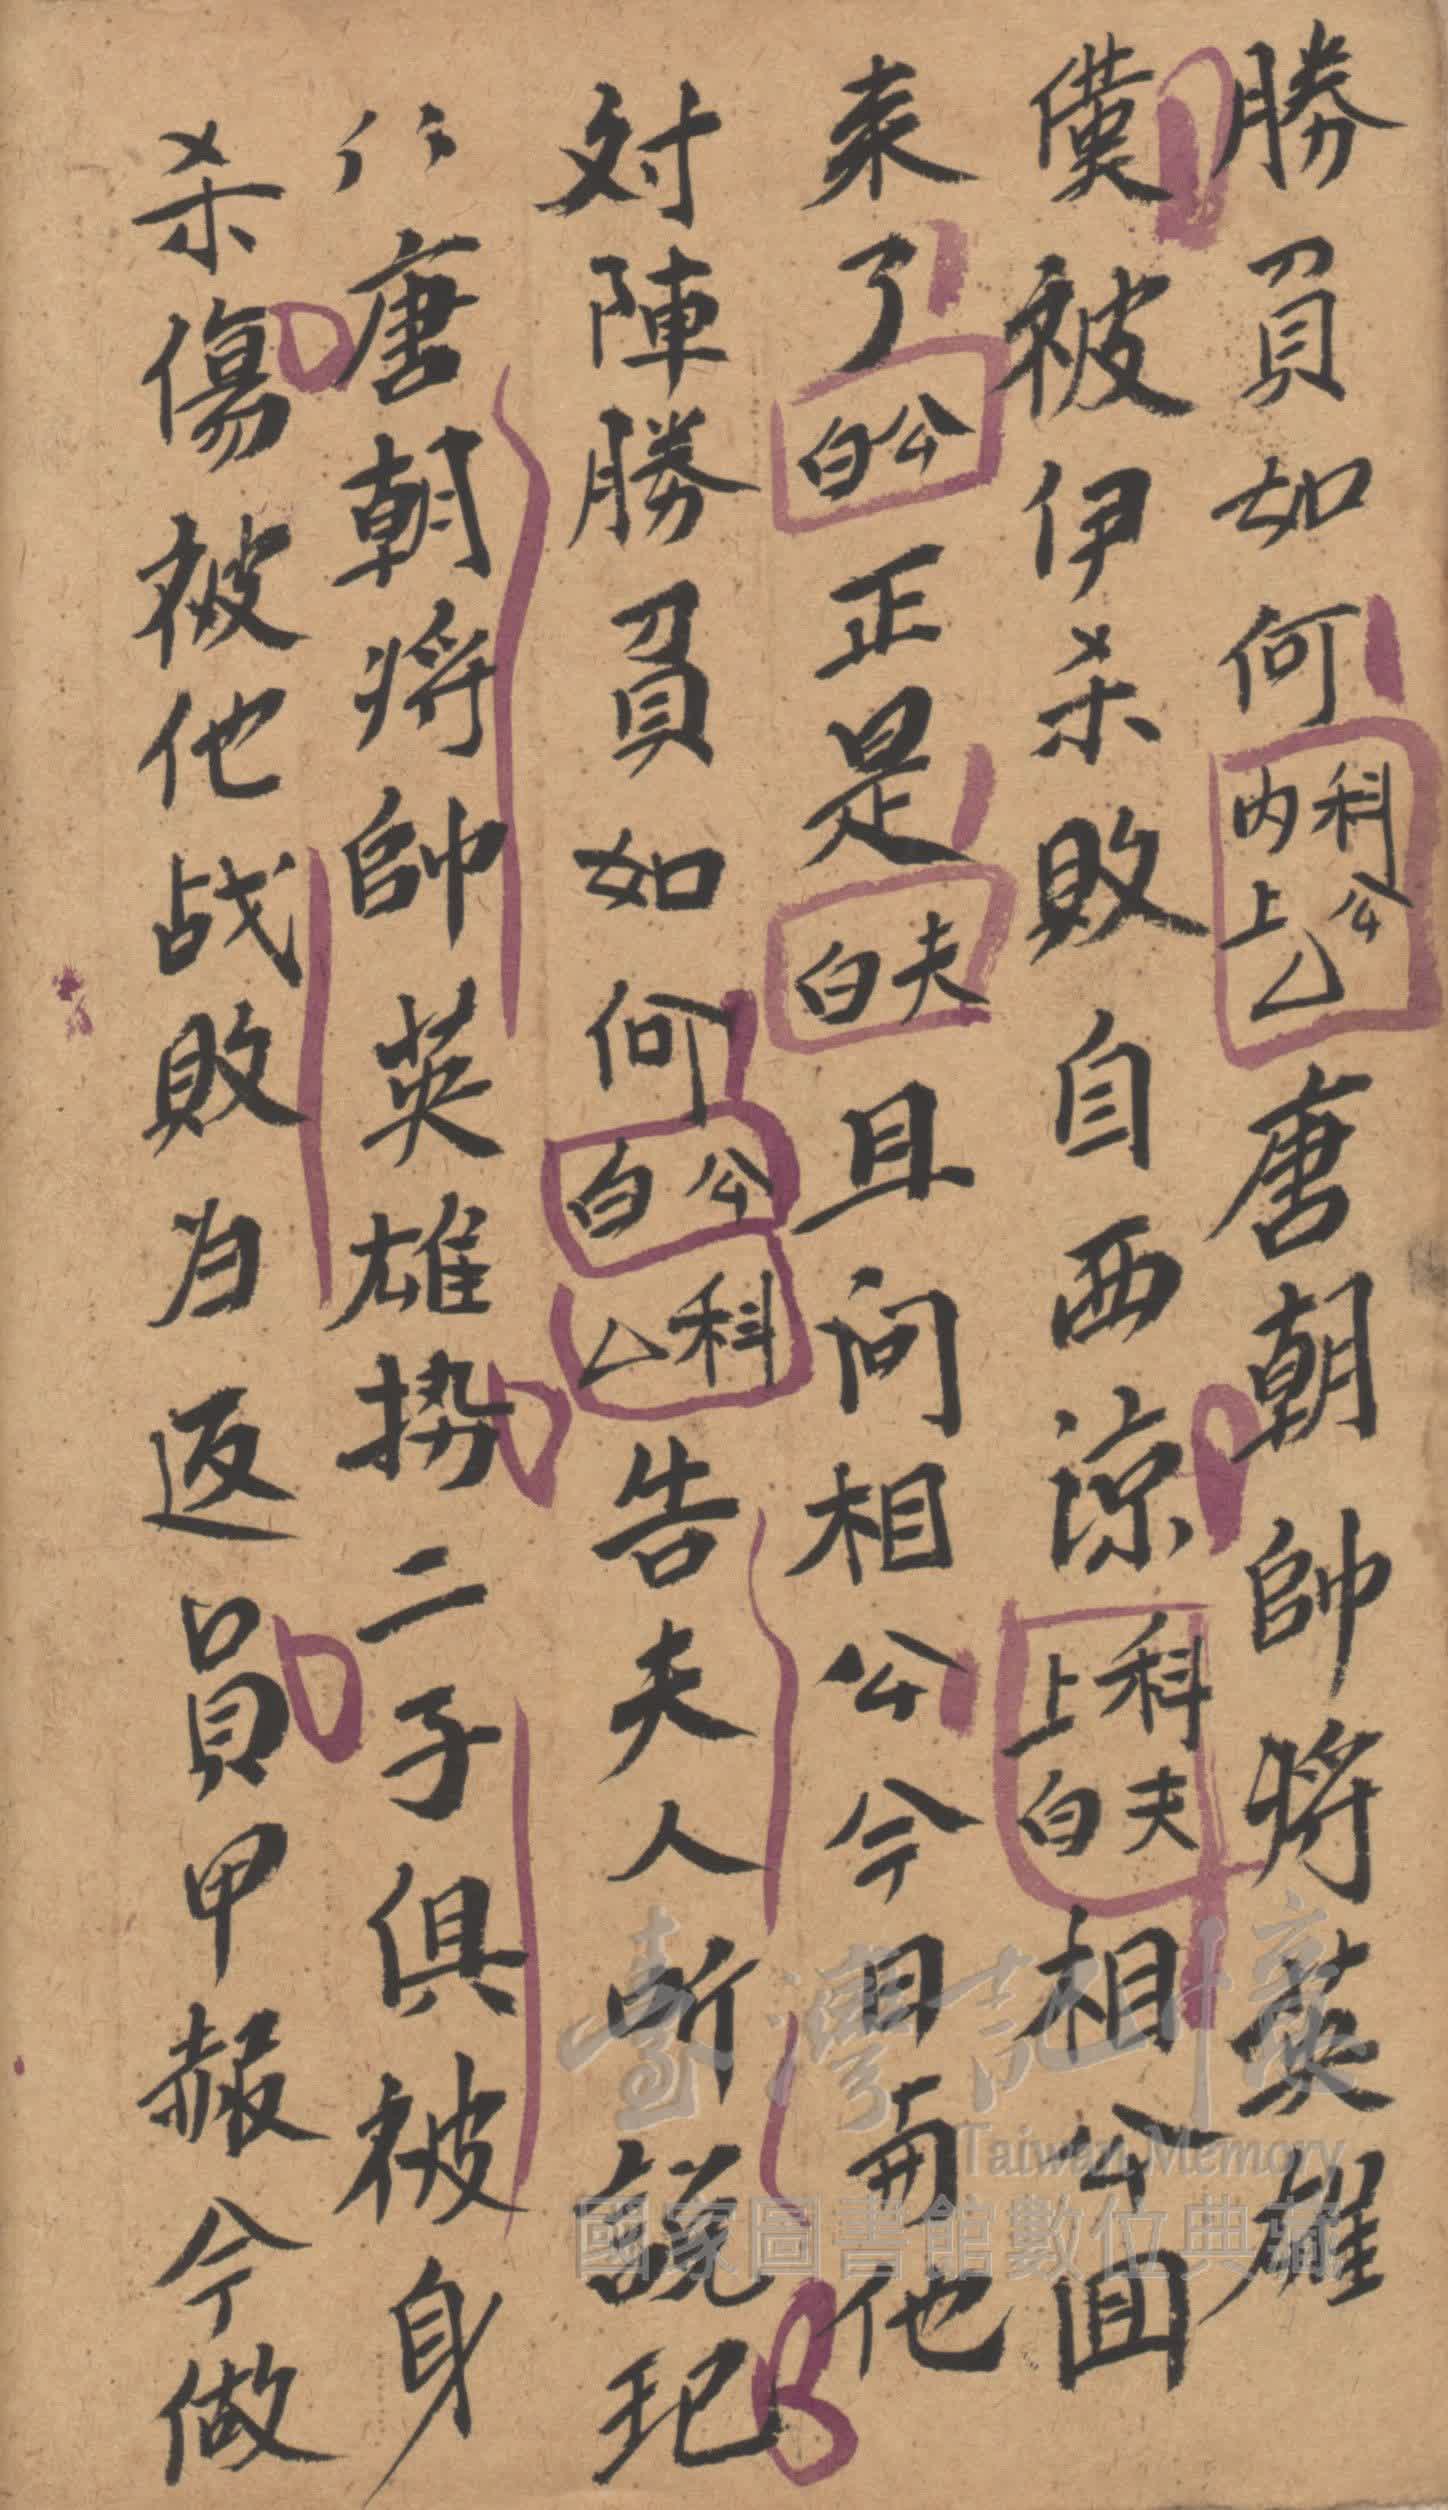 勝負如何科公内上乙唐朝帥将英雄
僕被伊杀敗自西涼科夫上白相公囬
来了公白正是夫白且问相公今日南他
对陣勝負如何公白科乙告夫人听説玘
唐朝将帥英雄势二子俱被身
杀傷被他战敗为返員甲赧今做
臺灣記憶
Taiwan Memory
國家圖書館數位典藏